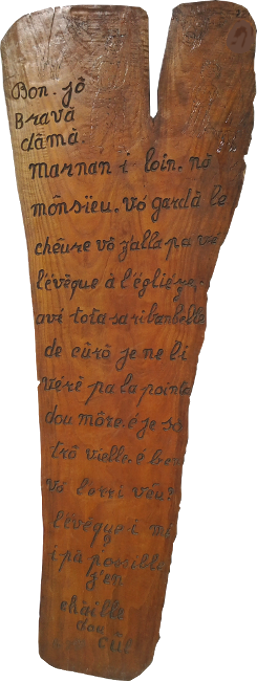 Bon. jô
Bravâ
dâmâ.
Marnan i loin. nô
mônsieu. vô gardâ le
chêure vô z'alla pa vé
l'évêque à l'égliéze.
avé tota sa ribanbelle
de cûrô je ne li
véré pa la pointe
dou môre. é je sô
trô vielle. é ben
vô l'orri vêu?
l'évêque i mé
i pâ possible
j'en
châille
dou
cûl